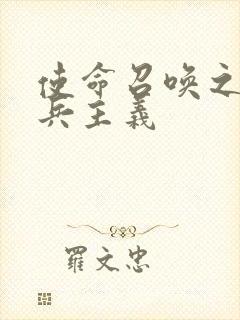 使命召唤之
兵主義
羅文忠